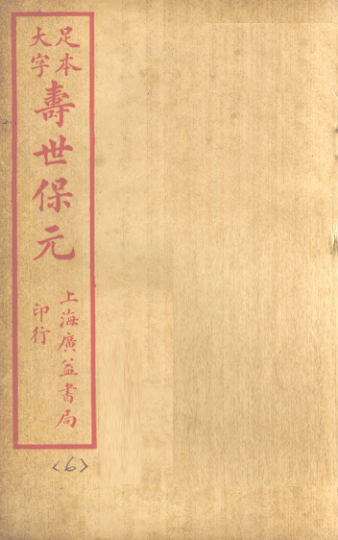 足本
大字
壽世保元
上海廣益書局
印行
<6>